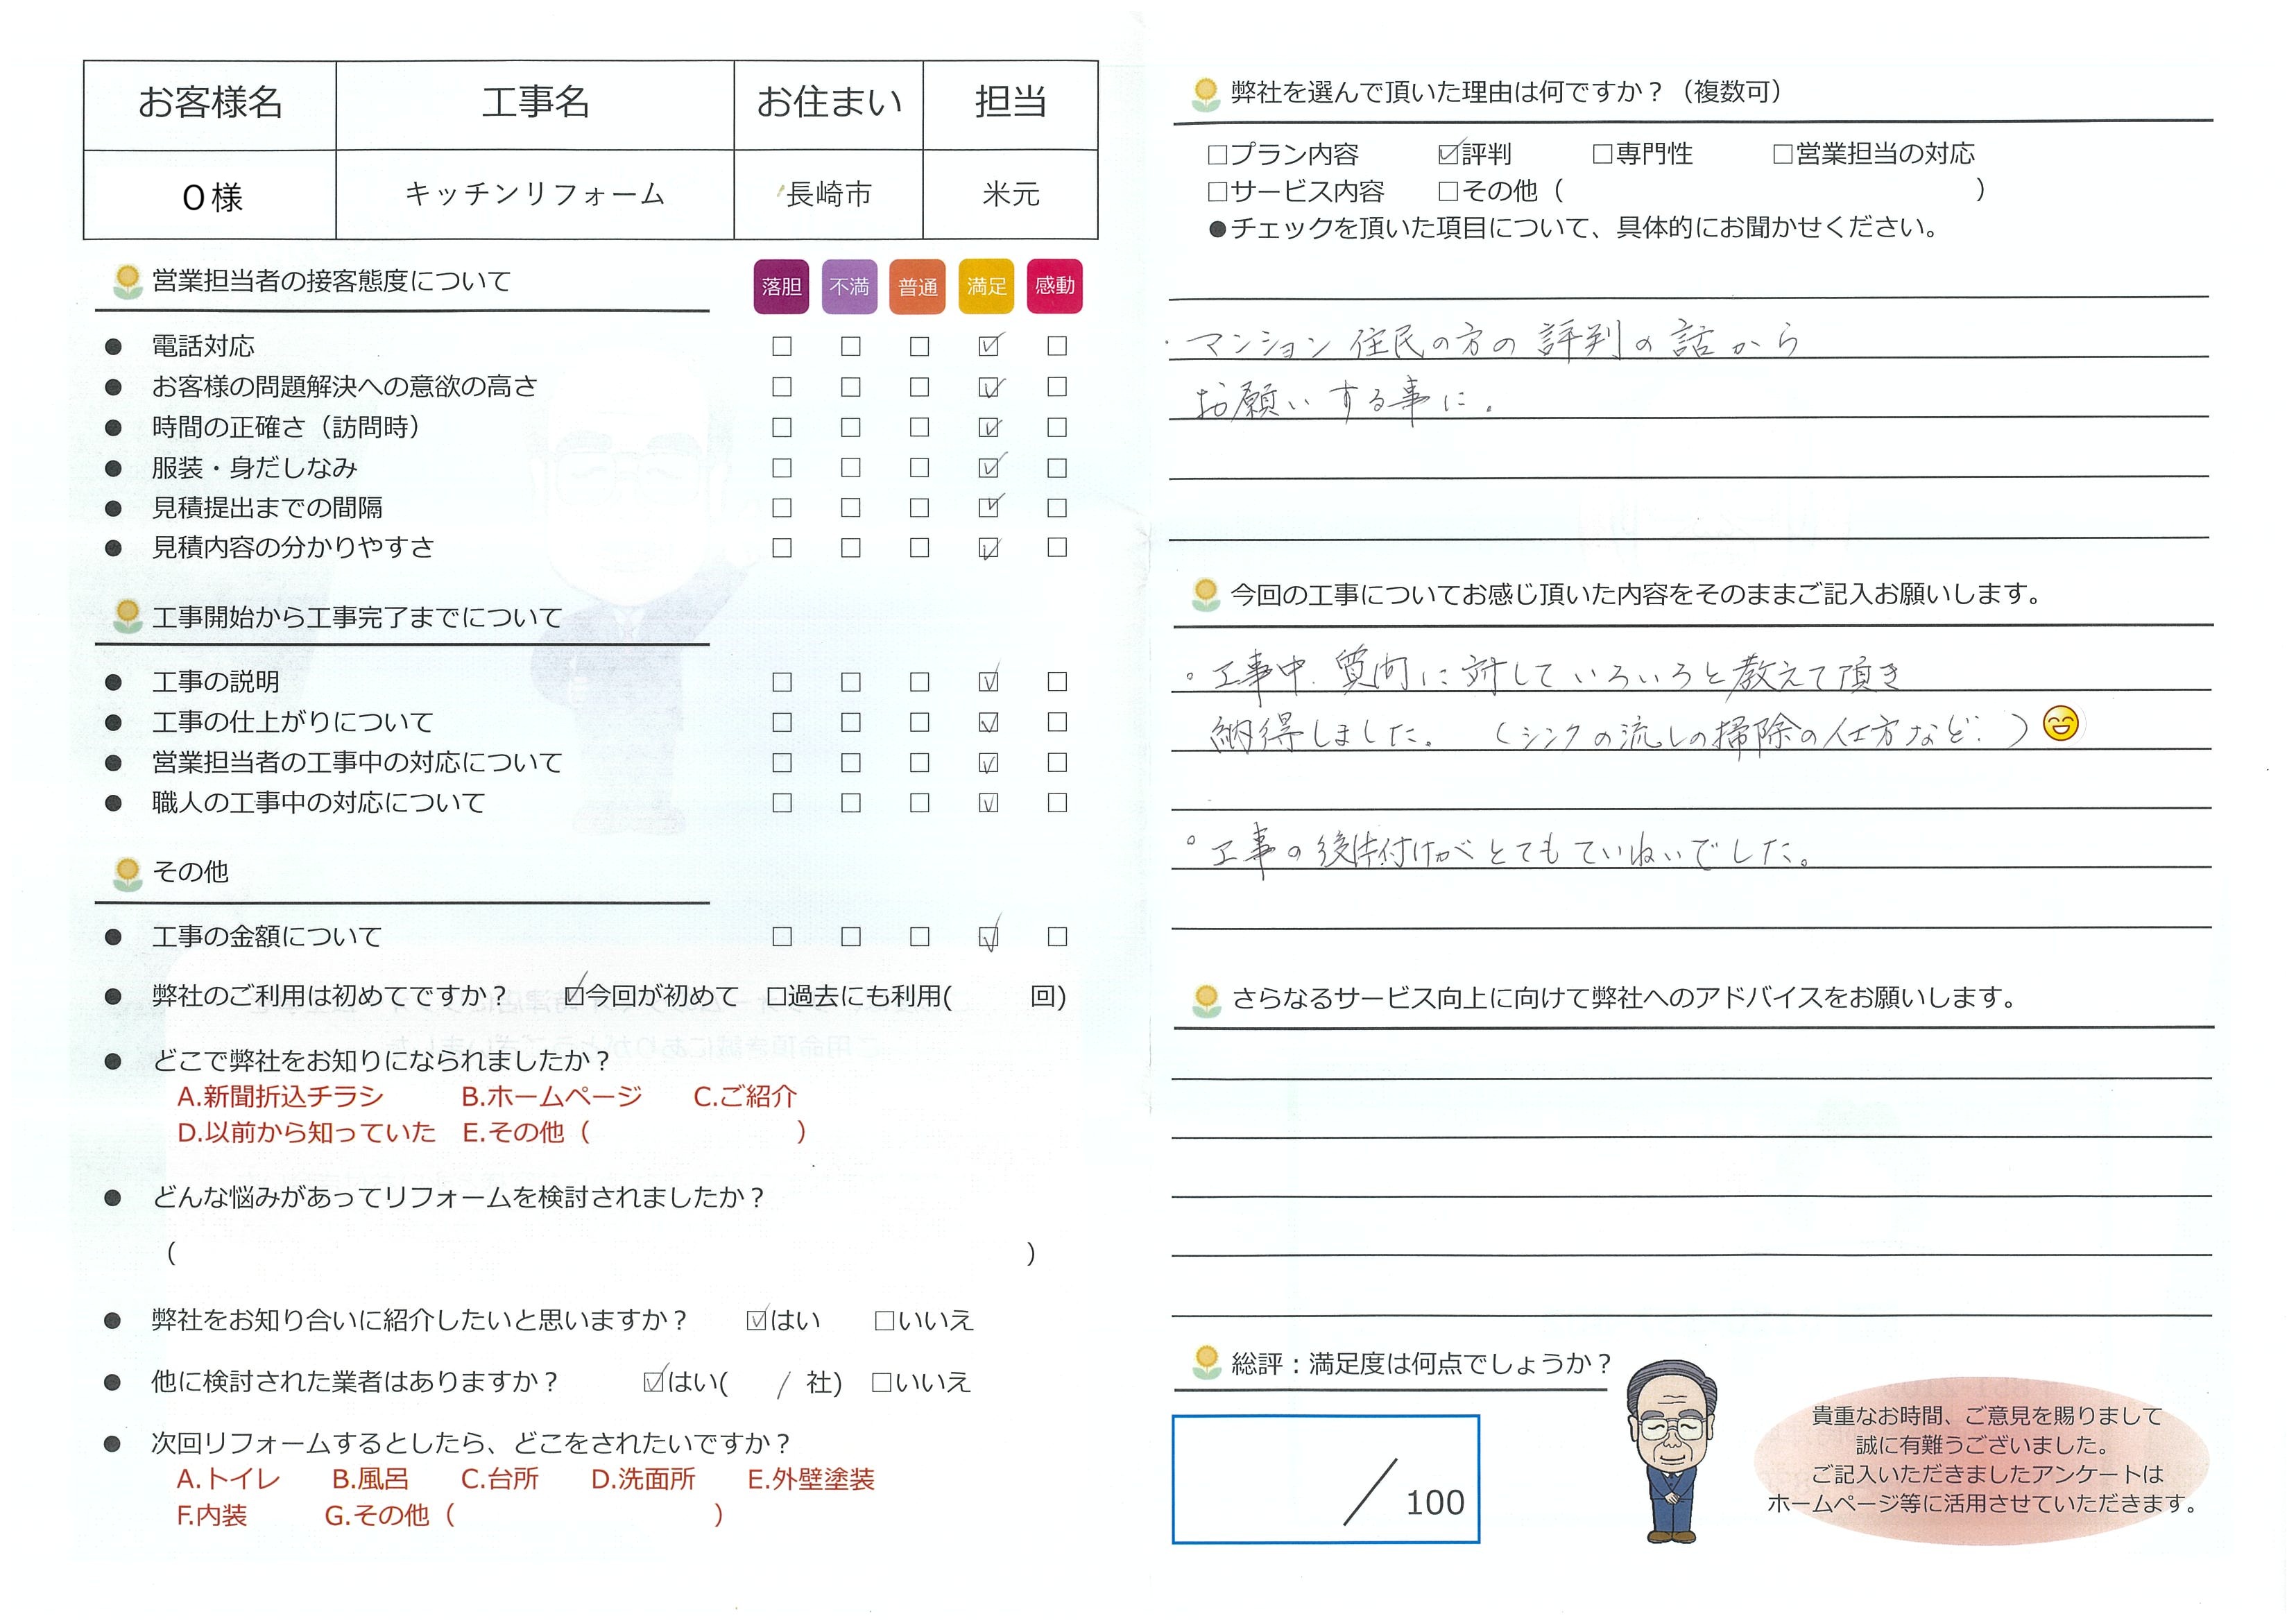 お客様名 工事名 お住まい 担当
O様 キッチンリフォーム 長崎市 米元
営業担当者の接客態度について 落胆 不満 普通 満足 感動
● 電話対応 □ □ □ ☑ □
● お客様の問題解決への意欲の高さ □ □ □ ☑ □
● 時間の正確さ（訪問時） □ □ □ ☑ □
● 服装・身だしなみ □ □ □ ☑ □
● 見積提出までの間隔 □ □ □ ☑ □
● 見積内容の分かりやすさ □ □ □ ☑ □
工事開始から工事完了までについて
● 工事の説明 □ □ □ ☑ □
● 工事の仕上がりについて □ □ □ ☑ □
● 営業担当者の工事中の対応について □ □ □ ☑ □
● 職人の工事中の対応について □ □ □ ☑ □
その他
● 工事の金額について □ □ □ ☑ □
● 弊社のご利用は初めてですか？ ☑今回が初めて □過去にも利用( 回)
● どこで弊社をお知りになられましたか？
A.新聞折込チラシ B.ホームページ C.ご紹介
D.以前から知っていた E.その他（ ）
● どんな悩みがあってリフォームを検討されましたか？
( )
● 弊社をお知り合いに紹介したいと思いますか？ ☑はい □いいえ
● 他に検討された業者はありますか？ ☑はい( / 社) □いいえ
● 次回リフォームするとしたら、どこをされたいですか？
A.トイレ B.風呂 C.台所 D.洗面所 E.外壁塗装
F.内装 G.その他（ ）
弊社を選んで頂いた理由は何ですか？（複数可）
□プラン内容 ☑評判 □専門性 □営業担当の対応
□サービス内容 □その他（ ）
●チェックを頂いた項目について、具体的にお聞かせください。
・マンション住民の方の評判の話から
お願いする事に。
今回の工事についてお感じ頂いた内容をそのままご記入お願いします。
。工事中、質問に対していろいろと教えて頂き
納得しました。 （シンクの流しの掃除の仕方など:）😄
。工事の後片付けがとてもていねいでした。
さらなるサービス向上に向けて弊社へのアドバイスをお願いします。
総評：満足度は何点でしょうか？
/ 100
貴重なお時間、ご意見を賜りまして
誠に有難うございました。
ご記入いただきましたアンケートは
ホームページ等に活用させていただきます。